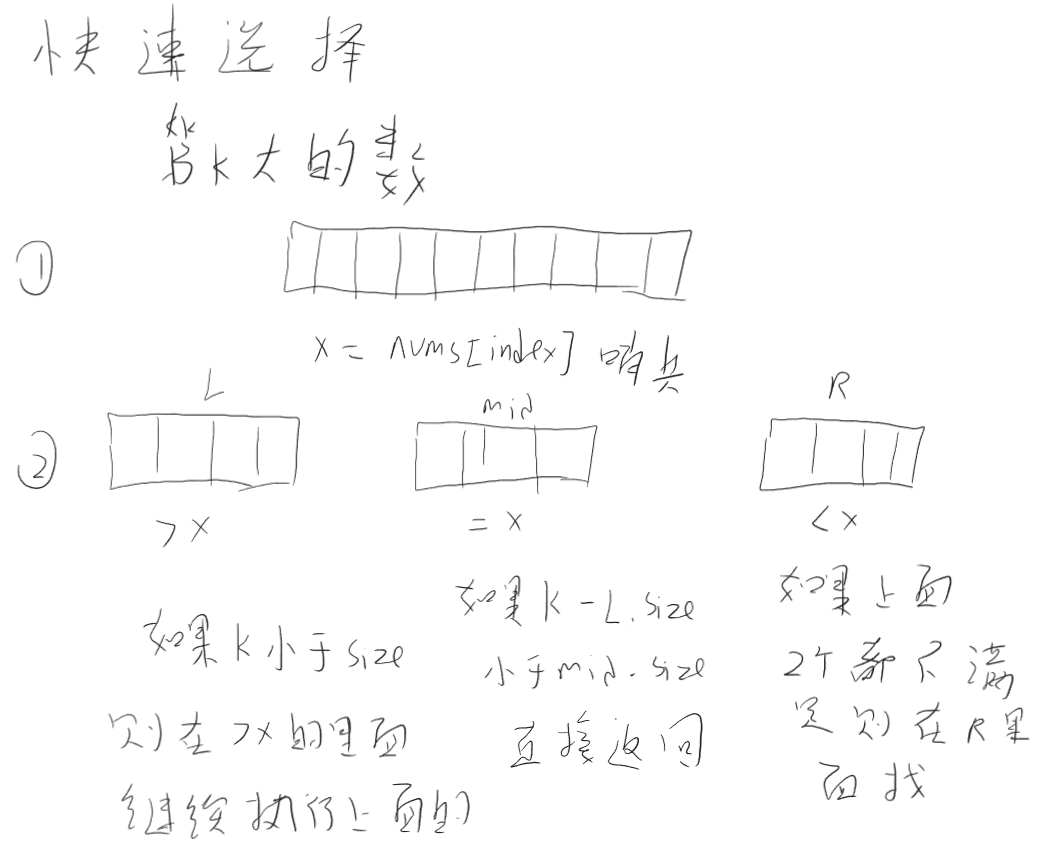 快速选择
第K大的数
①
x = nums[index] 哨兵
②
L
mid
R
>x
=x
<x
如果K小于size
则在>x的里面
继续执行上面的
如果K-L.size
小于mid.size
直接返回
如果上面
2个都不满
足则在R里
面找